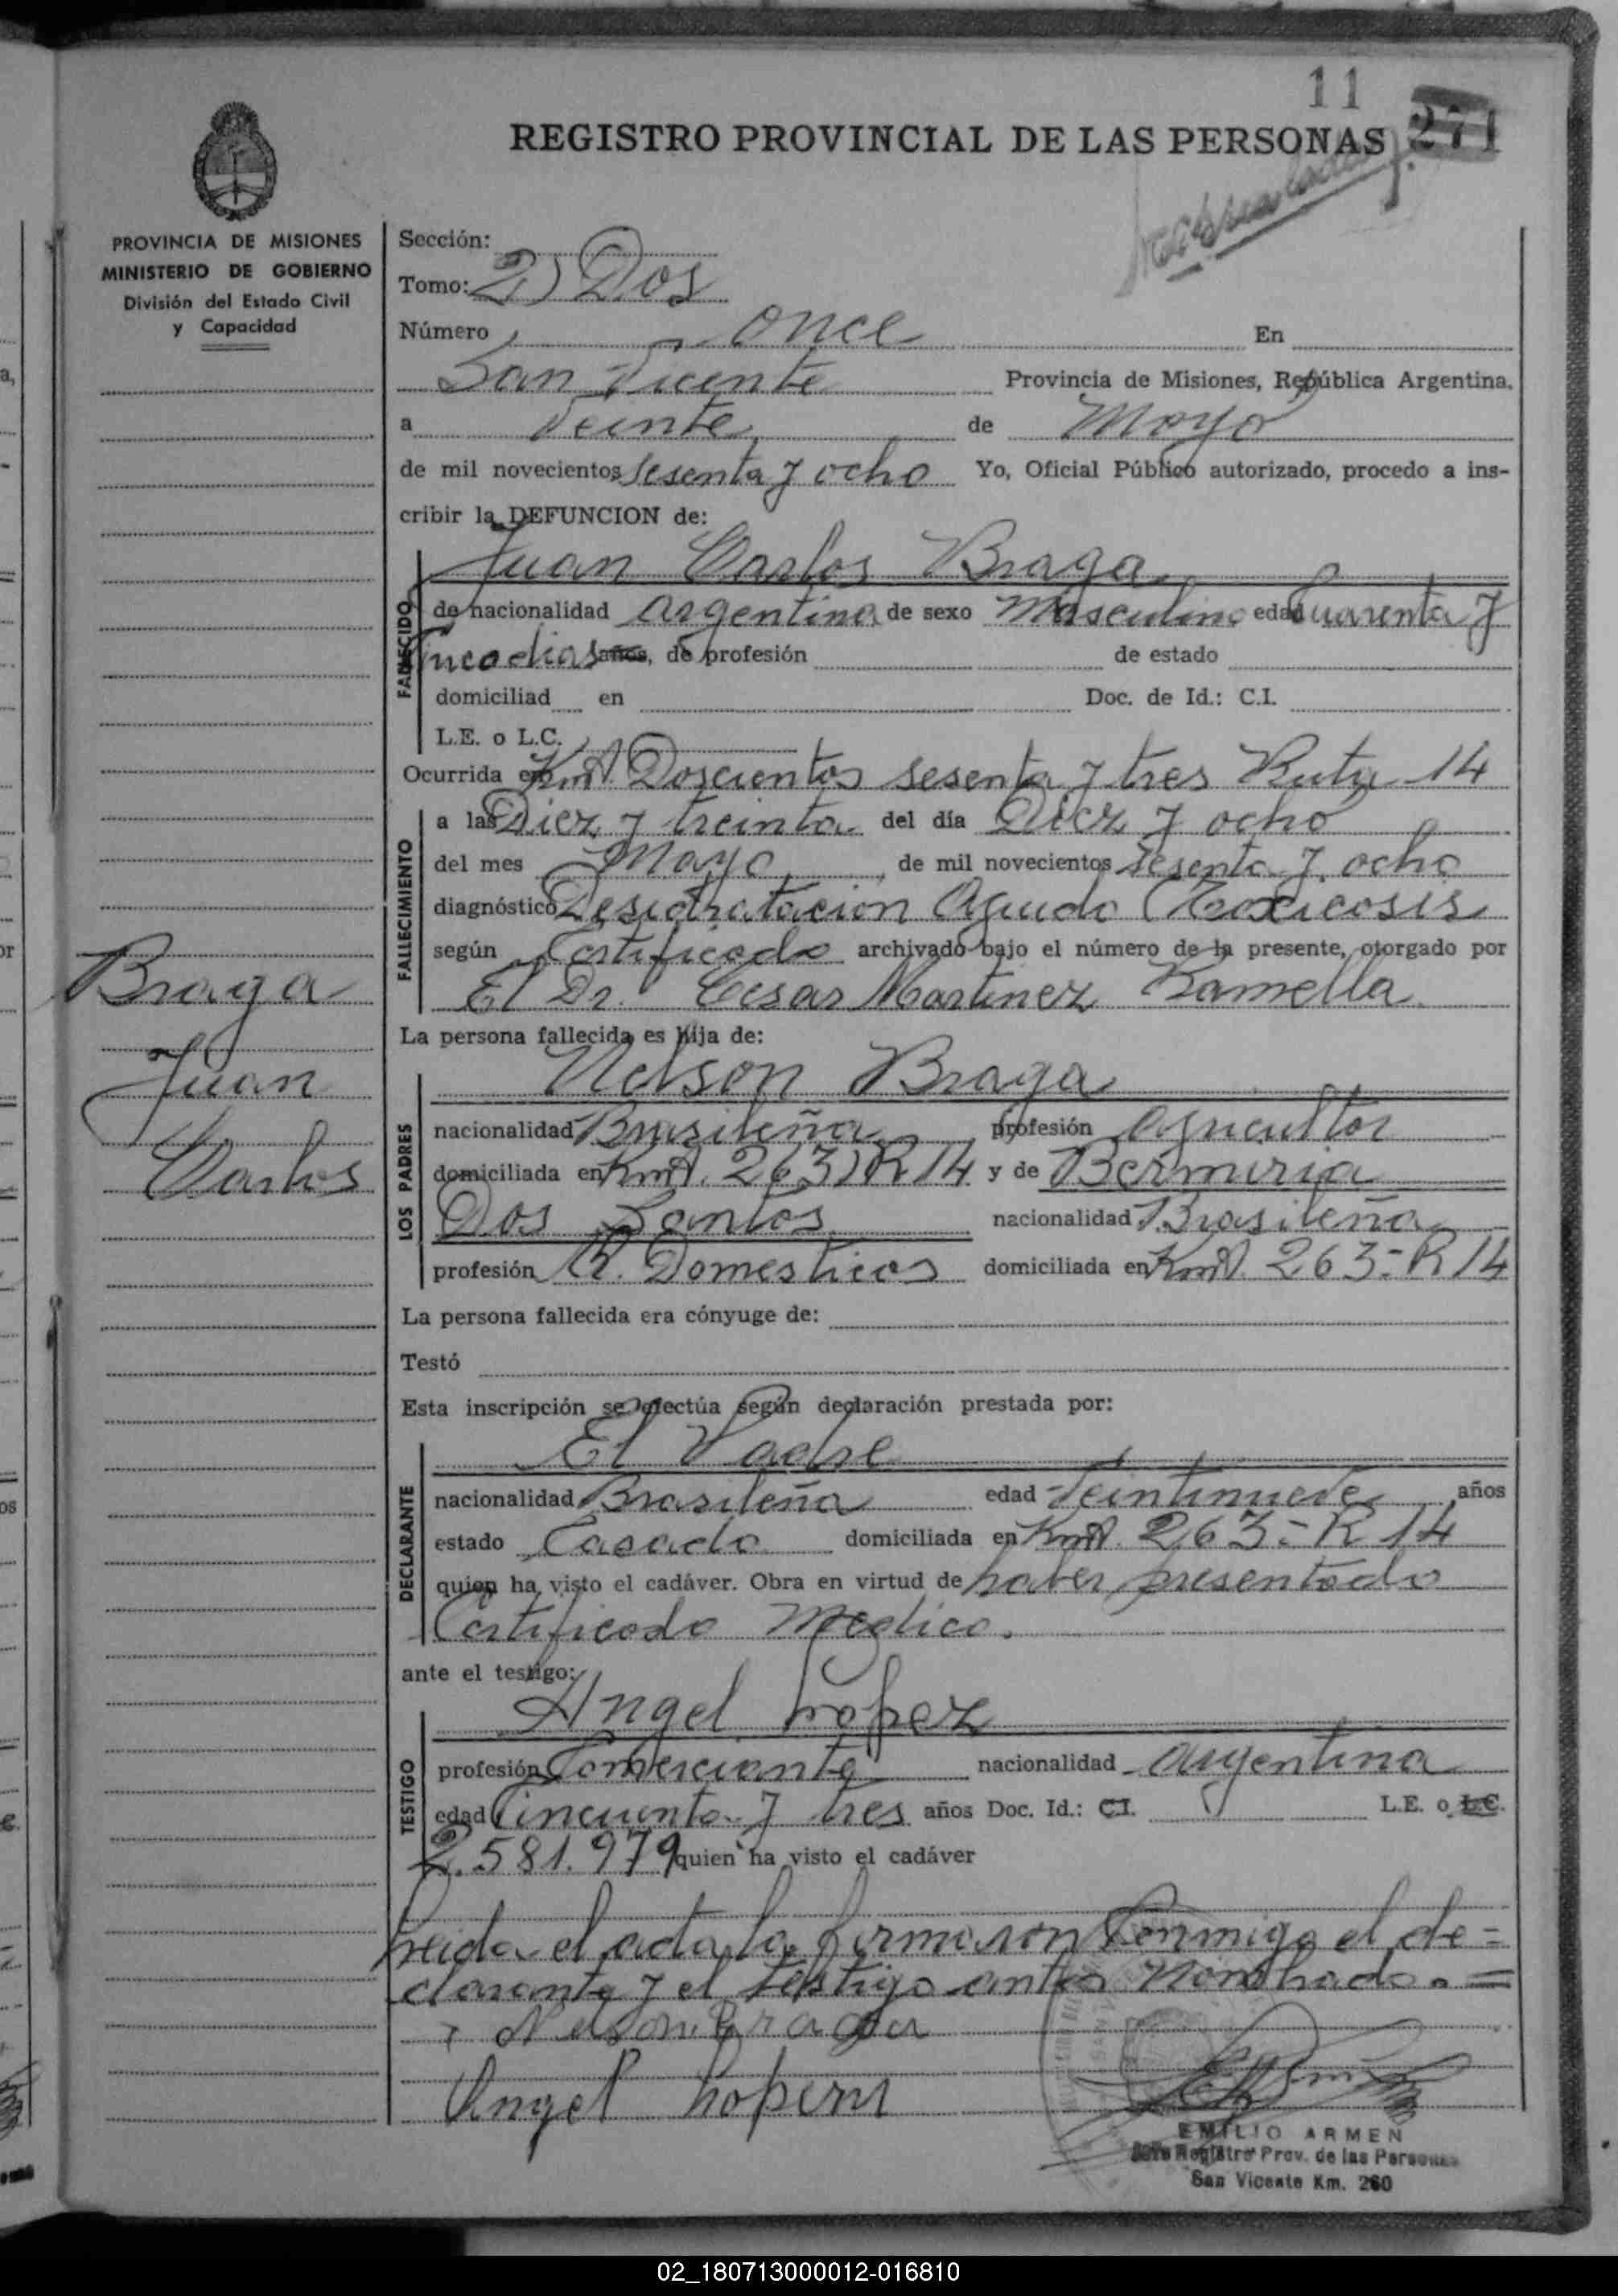 11
REGISTRO PROVINCIAL DE LAS PERSONAS 271
PROVINCIA DE MISIONES
MINISTERIO DE GOBIERNO
División del Estado Civil
y Capacidad
Sección:
Tomo: 2) Dos
Número once En
San Vicente Provincia de Misiones, República Argentina.
a Veinte de Mayo
de mil novecientos sesenta y ocho Yo, Oficial Público autorizado, procedo a ins-
cribir la DEFUNCION de:
Juan Carlos Braga
FALLECIDO
de nacionalidad argentina de sexo Masculino edad Cuarenta y
Cinco dias años, de profesión de estado
domiciliad en Doc. de Id.: C.I.
L.E. o L.C.
Ocurrida en Kmt. Doscientos sesenta y tres Ruta 14
FALLECIMIENTO
a las Diez y treinta del día Diez y ocho
del mes Mayo, de mil novecientos sesenta y ocho
diagnóstico Desidratacion Aguda (Toxicosis
según Certificado archivado bajo el número de la presente, otorgado por
El Dr. Cesar Martinez Ramella
Braga
Juan
Carlos
La persona fallecida es hija de:
Nelson Braga
LOS PADRES
nacionalidad Brasileña, profesión agricultor
domiciliada en Kmt. 263) R 14 y de Bermiria
Dos Santos nacionalidad Brasileña
profesión Q. Domesticos domiciliada en Kmt. 263 = R 14
La persona fallecida era cónyuge de:
Testó
Esta inscripción se efectúa según declaración prestada por:
El Padre
DECLARANTE
nacionalidad Brasileña edad Veintinueve, años
estado Casado domiciliada en Kmt. 263 = R 14
quien ha visto el cadáver. Obra en virtud de haber presentado
Certificado Medico.
ante el testigo:
Angel Lopez
TESTIGO
profesión Comerciante nacionalidad argentina
edad Cincuenta y tres años Doc. Id.: C.I. L.E. o L.C.
2.581.979 quien ha visto el cadáver
Leida el acta la firmaron Conmigo el de=
clarante y el testigo antes Nombrado. =
Nelson Braga
Angel Lopez
EMILIO ARMEN
Jefe Registro Prov. de las Personas
San Vicente Km. 260
02_180713000012-016810